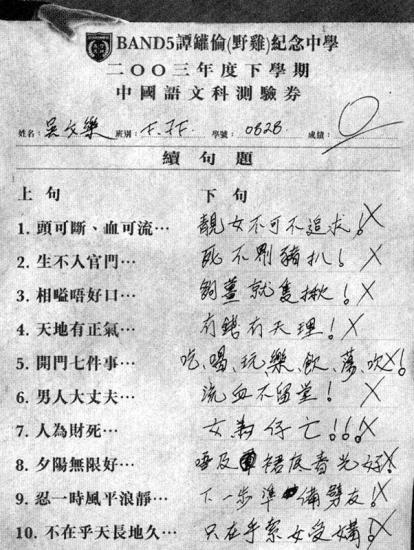 BAND5譚鑵倫(野雞)紀念中學
二〇〇三年度下學期
中國語文科測驗券
姓名：吳文樂 班別：F.3F. 學號：0828 成績：0
續句題
上句 下句
1. 頭可斷、血可流… 靚女不可不追求！X
2. 生不入官門… 死不劏豬扒！X
3. 相嗌唔好口… 錫薑就隻揪！X
4. 天地有正氣… 有錢有天理！X
5. 開門七件事… 吃、喝、玩、樂、飲、蕩、吹！X
6. 男人大丈夫… 流血不留堂！X
7. 人為財死… 女為仔亡！！！X
8. 夕陽無限好… 唔及裙底春光好！X
9. 忍一時風平浪靜… 下一步準備劈友！X
10. 不在乎天長地久… 只在乎索女受媾！X